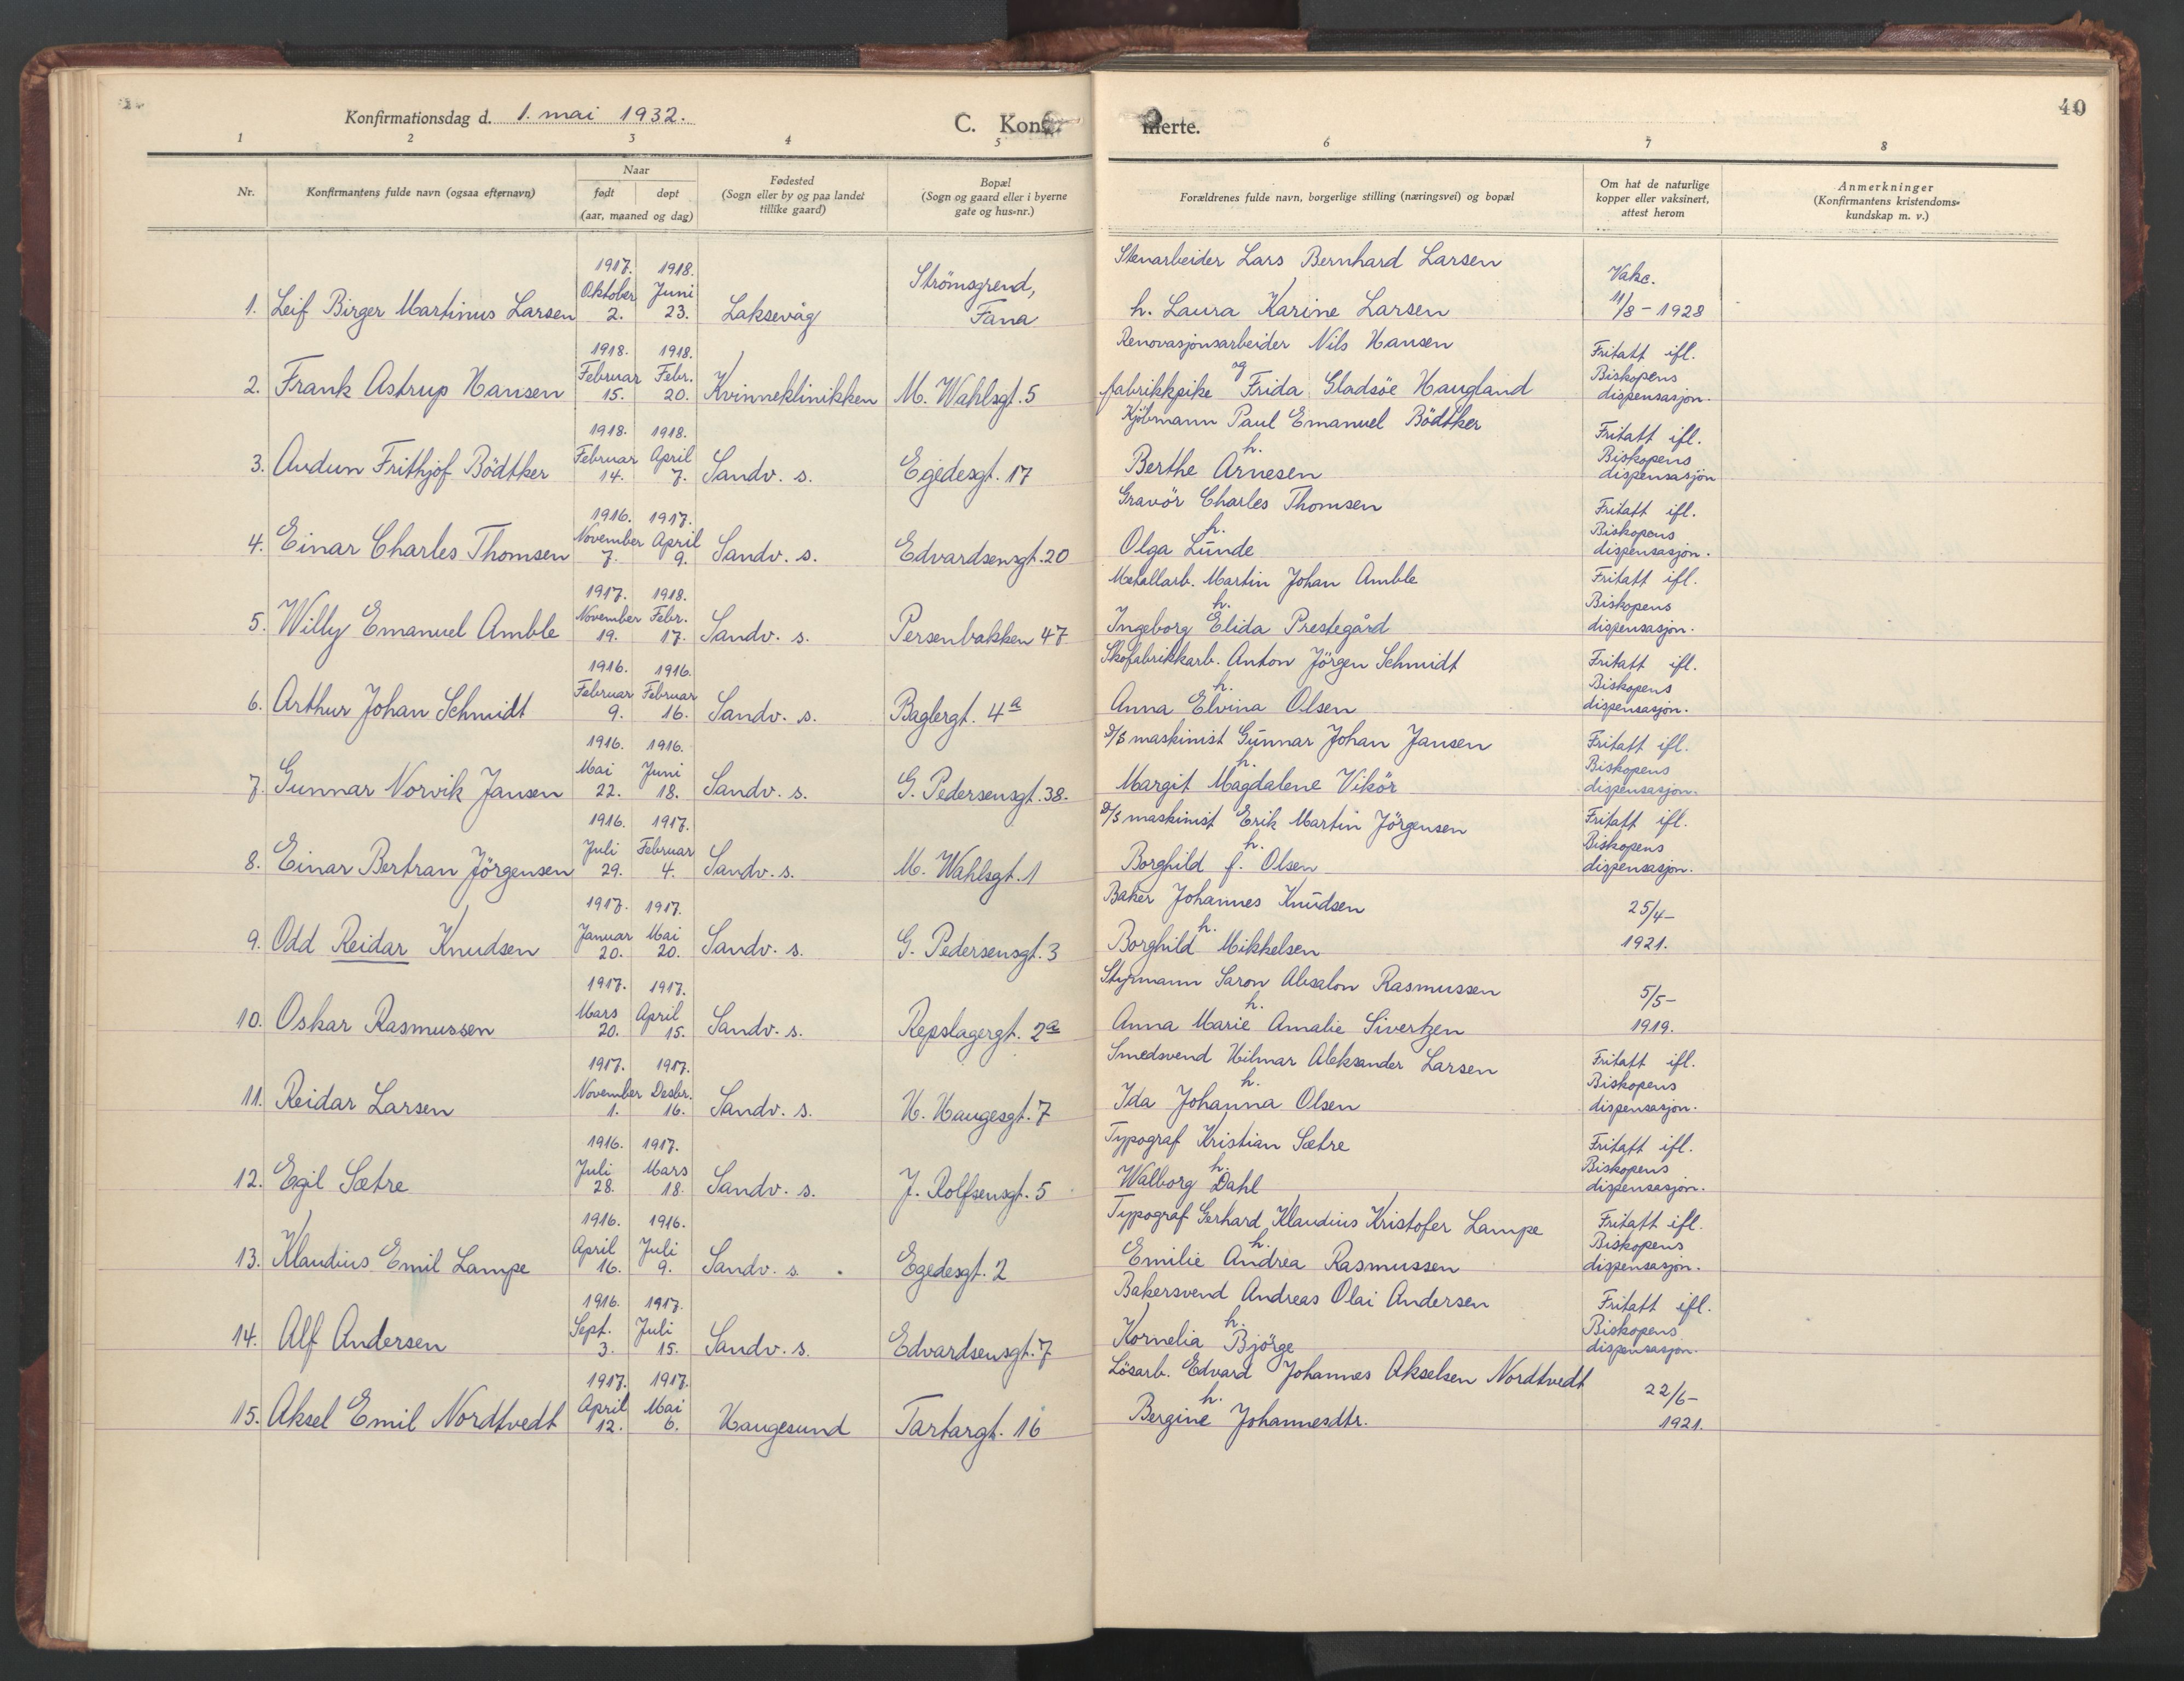 Konfirmationsdag d. 1. mai 1932.
C. Konf
merte.
40
1 2 3 4 5 6 7 8
Nr.
Konfirmantens fulde navn (ogsaa efternavn)
Naar
født døpt
(aar, maaned og dag)
Fødested
(Sogn eller by og paa landet
tillike gaard)
Bopæl
(Sogn og gaard eller i byerne
gate og hus-nr.)
Forældrenes fulde navn, borgerlige stilling (næringsvei) og bopæl
Om hat de naturlige
kopper eller vaksinert,
attest herom
Anmerkninger
(Konfirmantens kristendoms-
kundskap m. v.)
1917. 1918. Strömsgrend, Stenarbeider Lars Bernhard Larsen Vakc.
Oktober Juni
1. Leif Birger Martinus Larsen 2. 23. Laksevåg Fana h. Laura Karine Larsen 11/8 - 1928
1918. 1918. Renovasjonsarbeider Nils Hansen Fritatt ifl.
Februar Febr. og Biskopens
2. Frank Astrup Hansen 15. 20. Kvinneklinikken M. Wahlsgt. 5 fabrikkpike Frida Gladsöe Haugland dispensasjon.
1918. 1918. Kjöbmann Paul Emanuel Bödtker Fritatt ifl.
Februar April h. Biskopens
3. Audun Frithjof Bödtker 14. 7. Sandv. s. Egedesgt. 17 Berthe Arnesen dispensasjon
1916. 1917. Gravör Charles Thomsen Fritatt ifl.
November April h. Biskopens
4. Einar Charles Thomsen 7. 9. Sandv. s. Edvardsensgt. 20 Olga Lunde dispensasjon.
1917. 1918. Metallarb. Martin Johan Amble Fritatt ifl.
November Febr. h. Biskopens
5. Willy Emanuel Amble 19. 17. Sandv. s. Persenbakken 47 Ingeborg Elida Prestegård dispensasjon.
1916. 1916. Skofabrikkarb. Anton Jörgen Schmidt Fritatt ifl.
Februar Februar h. Biskopens
6. Arthur Johan Schmidt 9. 16. Sandv. s. Baglergt. 4a Anna Elvina Olsen dispensasjon.
1916. 1916. D/S maskinist Gunnar Johan Jansen Fritatt ifl.
Mai Juni h. Biskopens
7. Gunnar Norvik Jansen 22. 18. Sandv. s. G. Pedersensgt. 38. Margit Magdalene Vikör dispensasjon.
1916. 1917. D/S maskinist Erik Martin Jörgensen Fritatt ifl.
Juli Februar h. Biskopens
8. Einar Bertran Jörgensen 29. 4. Sandv. s. M. Wahlsgt. 1 Borghild f. Olsen dispensasjon.
1917. 1917. Baker Johannes Knudsen 25/4-
Januar Mai h.
9. Odd Reidar Knudsen 20. 20. Sandv. s. G. Pedersensgt. 3 Borghild Mikkelsen 1921.
1917. 1917. Styrmann Saron Absalon Rasmussen 5/5-
Mars April h.
10. Oskar Rasmussen 20. 15. Sandv. s. Repslagergt. 2a Anna Marie Amalie Sivertzen 1919.
1917. 1917. Smedsvend Hilmar Aleksander Larsen Fritatt ifl.
November Desbr. h. Biskopens
11. Reidar Larsen 1. 16. Sandv. s. H. Haugesgt. 7 Ida Johanna Olsen dispensasjon.
1916. 1917. Typograf Kristian Sætre Fritatt ifl.
Juli Mars h. Biskopens
12. Egil Sætre 28. 18. Sandv. s. J. Rolfsensgt. 5 Walborg Dahl dispensasjon.
1916. 1916. Typograf Gerhard Klaudius Kristofer Lampe Fritatt ifl.
April Juli h. Biskopens
13. Klaudius Emil Lampe 16. 9. Sandv. s. Egedesgt. 2 Emilie Andrea Rasmussen dispensasjon.
1916. 1917. Bakersvend Andreas Olai Andersen Fritatt ifl.
Sept. Juli h. Biskopens
14. Alf Andersen 3. 15. Sandv. s. Edvardsensgt. 7 Kornelia Björge dispensasjon.
1917. 1917. Lösarb. Edvard Johannes Akselsen Nordtvedt 22/6-
April Mai h.
15. Aksel Emil Nordtvedt 12. 6. Haugesund Tartargt. 16 Bergine Johannesdtr. 1921.